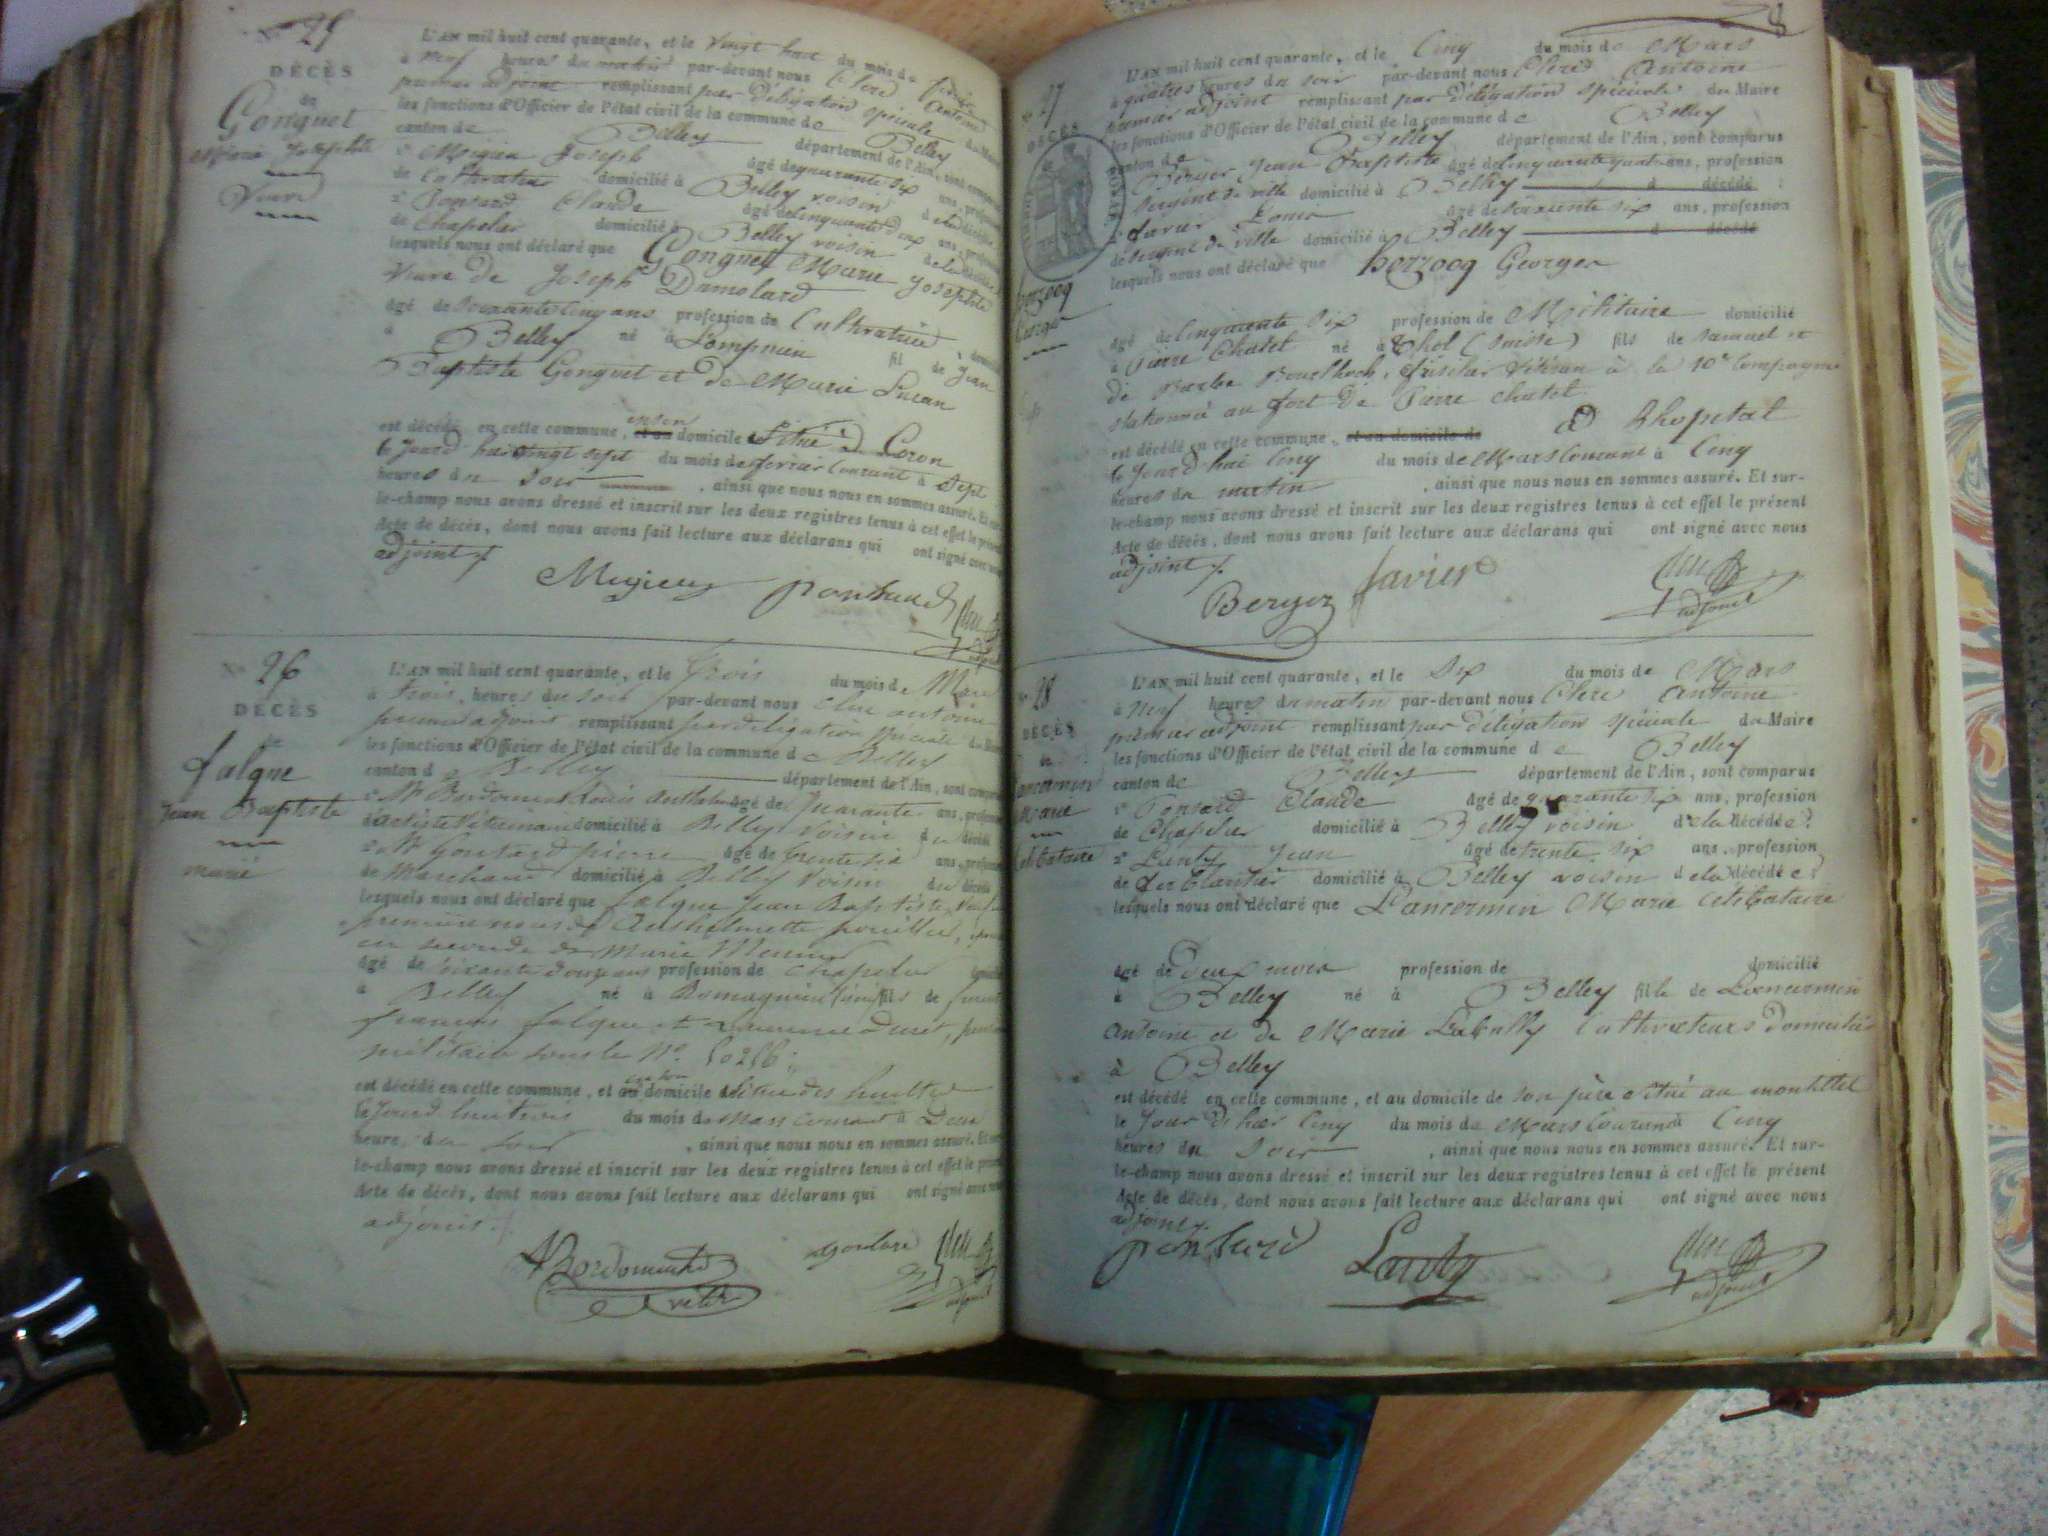 N° 25
DÉCÈS
de
Gonguet
Marie Josephte
Veuve
L'AN mil huit cent quarante, et le vingt huit du mois de
à Neuf heures du matin par-devant nous Clerc Antoine
premier adjoint remplissant par délégation spéciale du Maire
les fonctions d'Officier de l'état civil de la commune de Belley
canton de Belley département de l'Ain, sont comparus
1° Migieu Joseph âgé de quarante six ans, profession
de Cultivateur domicilié à Belley voisin de la décédée
2° Ponsard Claude âgé de cinquante deux ans, profession
de Chapelier domicilié à Belley voisin de la décédée
lesquels nous ont déclaré que Gonguet Marie Josephte
Veuve de Joseph Dumolard
âgé de soixante cinq ans profession de Cultivatrice domicilié
à Belley né à Lompnieu fil de Jean
Baptiste Gonguet et de Marie Lucan
est décédé en cette commune, en son domicile situé à Coron
le jourd'hui vingt sept du mois de fevrier Courant à Sept
heures du Soir , ainsi que nous nous en sommes assuré. Et sur-
le-champ nous avons dressé et inscrit sur les deux registres tenus à cet effet le présent
Acte de décès, dont nous avons fait lecture aux déclarans qui ont signé avec nous
adjoint
Migieu ponsard
adjoint
N° 26
DÉCÈS
de
falque
Jean Baptiste
marié
L'AN mil huit cent quarante, et le trois du mois de Mars
à trois heures du soir par-devant nous Clerc antoine
premier adjoint remplissant par délégation spéciale du Maire
les fonctions d'Officier de l'état civil de la commune de Belley
canton de Belley département de l'Ain, sont comparus
1° Mr Louis Anthelme âgé de quarante ans, profession
d'artiste Vétérinaire domicilié à Belley Voisin du décédé
2° Mr Goutard pierre âgé de trente six ans, profession
de Marchand domicilié à Belley Voisin du décédé
lesquels nous ont déclaré que falque Jean Baptiste, veuf en
premiere noces de Anthelmette
en seconde de Marie
âgé de soixante douze ans profession de chapelier domicilié
à Belley né à fils de
françois falque et
militaire sous le N° 50256
est décédé en cette commune, et en son domicile situé des
le Jourd'hui trois du mois de Mars courant à Deux
heures du soir , ainsi que nous nous en sommes assuré. Et sur-
le-champ nous avons dressé et inscrit sur les deux registres tenus à cet effet le présent
Acte de décès, dont nous avons fait lecture aux déclarans qui ont signé avec nous
adjoint.
goutard
adjoint
N° 27
DÉCÈS
de
herzoog
George
L'AN mil huit cent quarante, et le Cinq du mois de Mars
à quatres heures du soir par-devant nous Clerc Antoine
premier adjoint remplissant par délégation spéciale du Maire
les fonctions d'Officier de l'état civil de la commune de Belley
canton de Belley département de l'Ain, sont comparus
1° Berger Jean Baptiste âgé de cinquante quatre ans, profession
de sergent de ville domicilié à Belley d décédé
2° Favier Louis âgé de soixante six ans, profession
de sergent de ville domicilié à Belley d décédé
lesquels nous ont déclaré que herzoog George
âgé de cinquante six profession de Militaire domicilié
à Pierre Chatel né à (Suisse) fils de Samuel et
de Barbe fusilier vétéran à la 10e Compagnie
stationné au fort de Pierre chatel
est décédé en cette commune, et au domicile de à l'hopital
le Jourd'hui Cinq du mois de Mars Courant à Cinq
heures du matin , ainsi que nous nous en sommes assuré. Et sur-
le-champ nous avons dressé et inscrit sur les deux registres tenus à cet effet le présent
Acte de décès, dont nous avons fait lecture aux déclarans qui ont signé avec nous
adjoint
Berger favier
adjoint
N° 28
DÉCÈS
de
Lancermin
Marie
Celibataire
L'AN mil huit cent quarante, et le Six du mois de Mars
à Neuf heures du matin par-devant nous Clerc Antoine
premier adjoint remplissant par délégation spéciale du Maire
les fonctions d'Officier de l'état civil de la commune de Belley
canton de Belley département de l'Ain, sont comparus
1° Ponsard Claude âgé de quarante six ans, profession
de Chapelier domicilié à Belley voisin de la décédée
2° Lanty Jean âgé de trente six ans, profession
de ferblantier domicilié à Belley voisin de la décédée
lesquels nous ont déclaré que Lancermin Marie Celibataire
âgé de Deux mois profession de domicilié
à Belley né à Belley fille de Lancermin
Antoine et de Marie Labully Cultivateurs domiciliés
à Belley
est décédé en cette commune, et au domicile de son père situé au montillet
le Jour d'hier Cinq du mois de Mars Courant à Cinq
heures du Soir , ainsi que nous nous en sommes assuré. Et sur-
le-champ nous avons dressé et inscrit sur les deux registres tenus à cet effet le présent
Acte de décès, dont nous avons fait lecture aux déclarans qui ont signé avec nous
adjoint
ponsard Lanty
adjoint